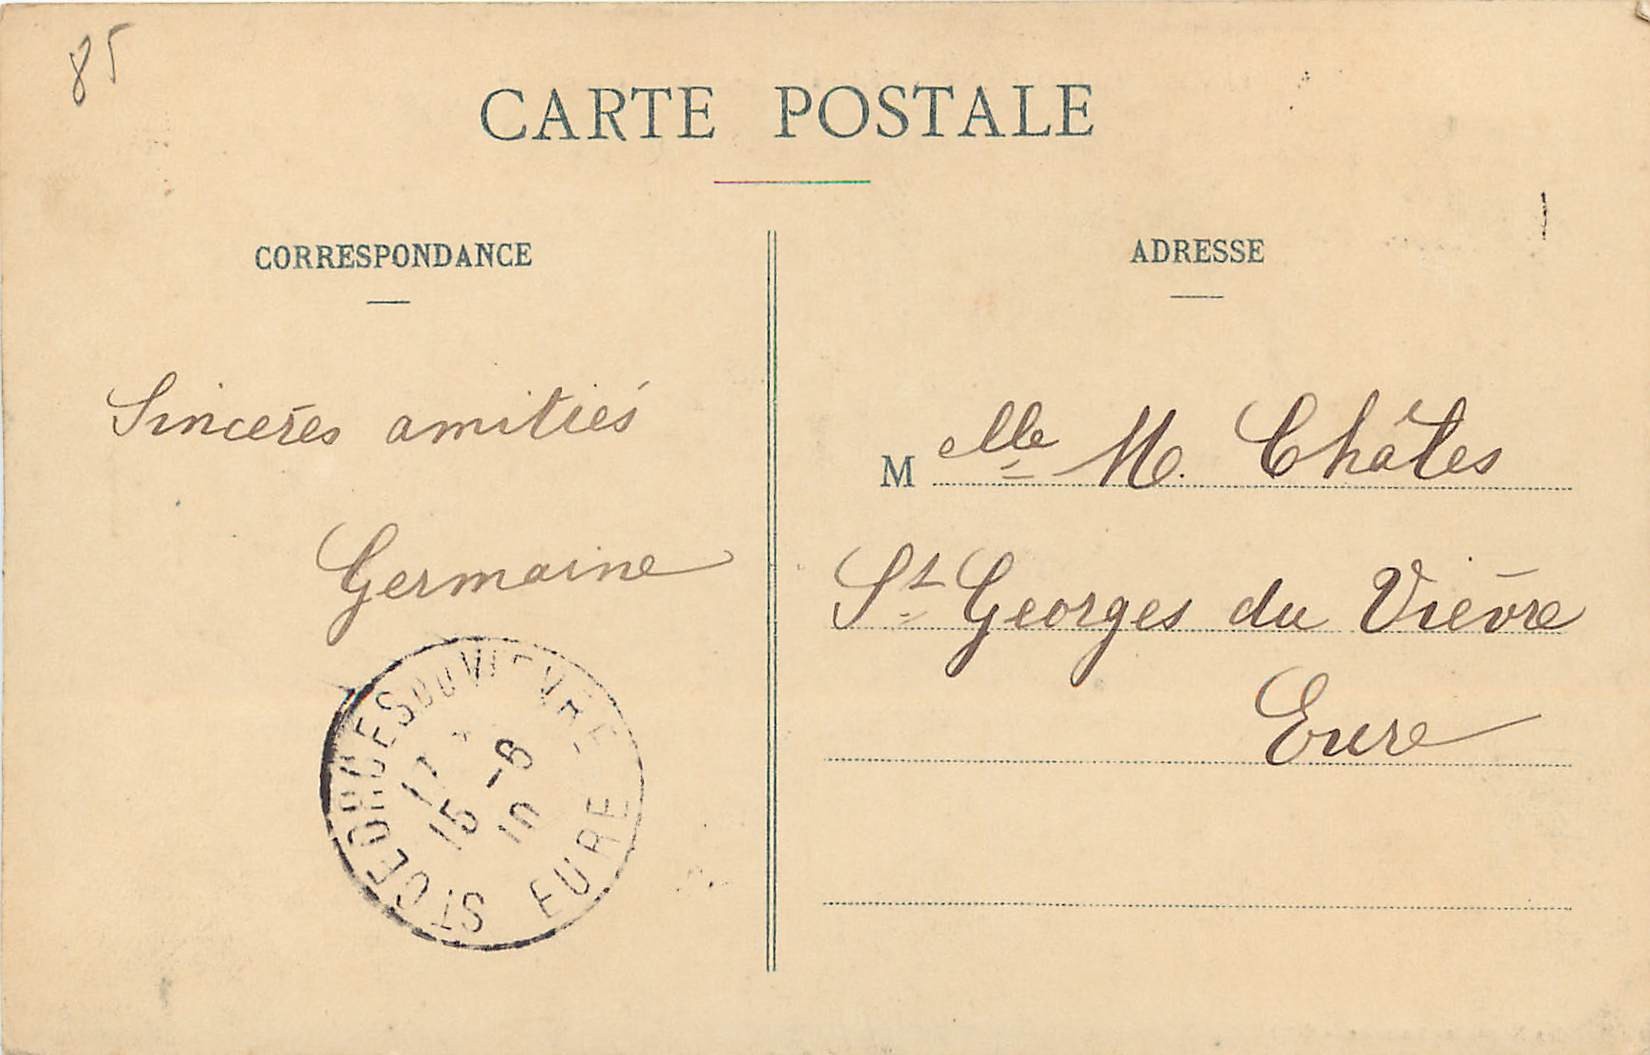 85
CARTE POSTALE
CORRESPONDANCE
Sincères amitiés
Germaine
ADRESSE
Melle M. Châles
St Georges du Vièvre
Eure
ST GEORGES DU VIEVRE
EURE
17
15 -8
10